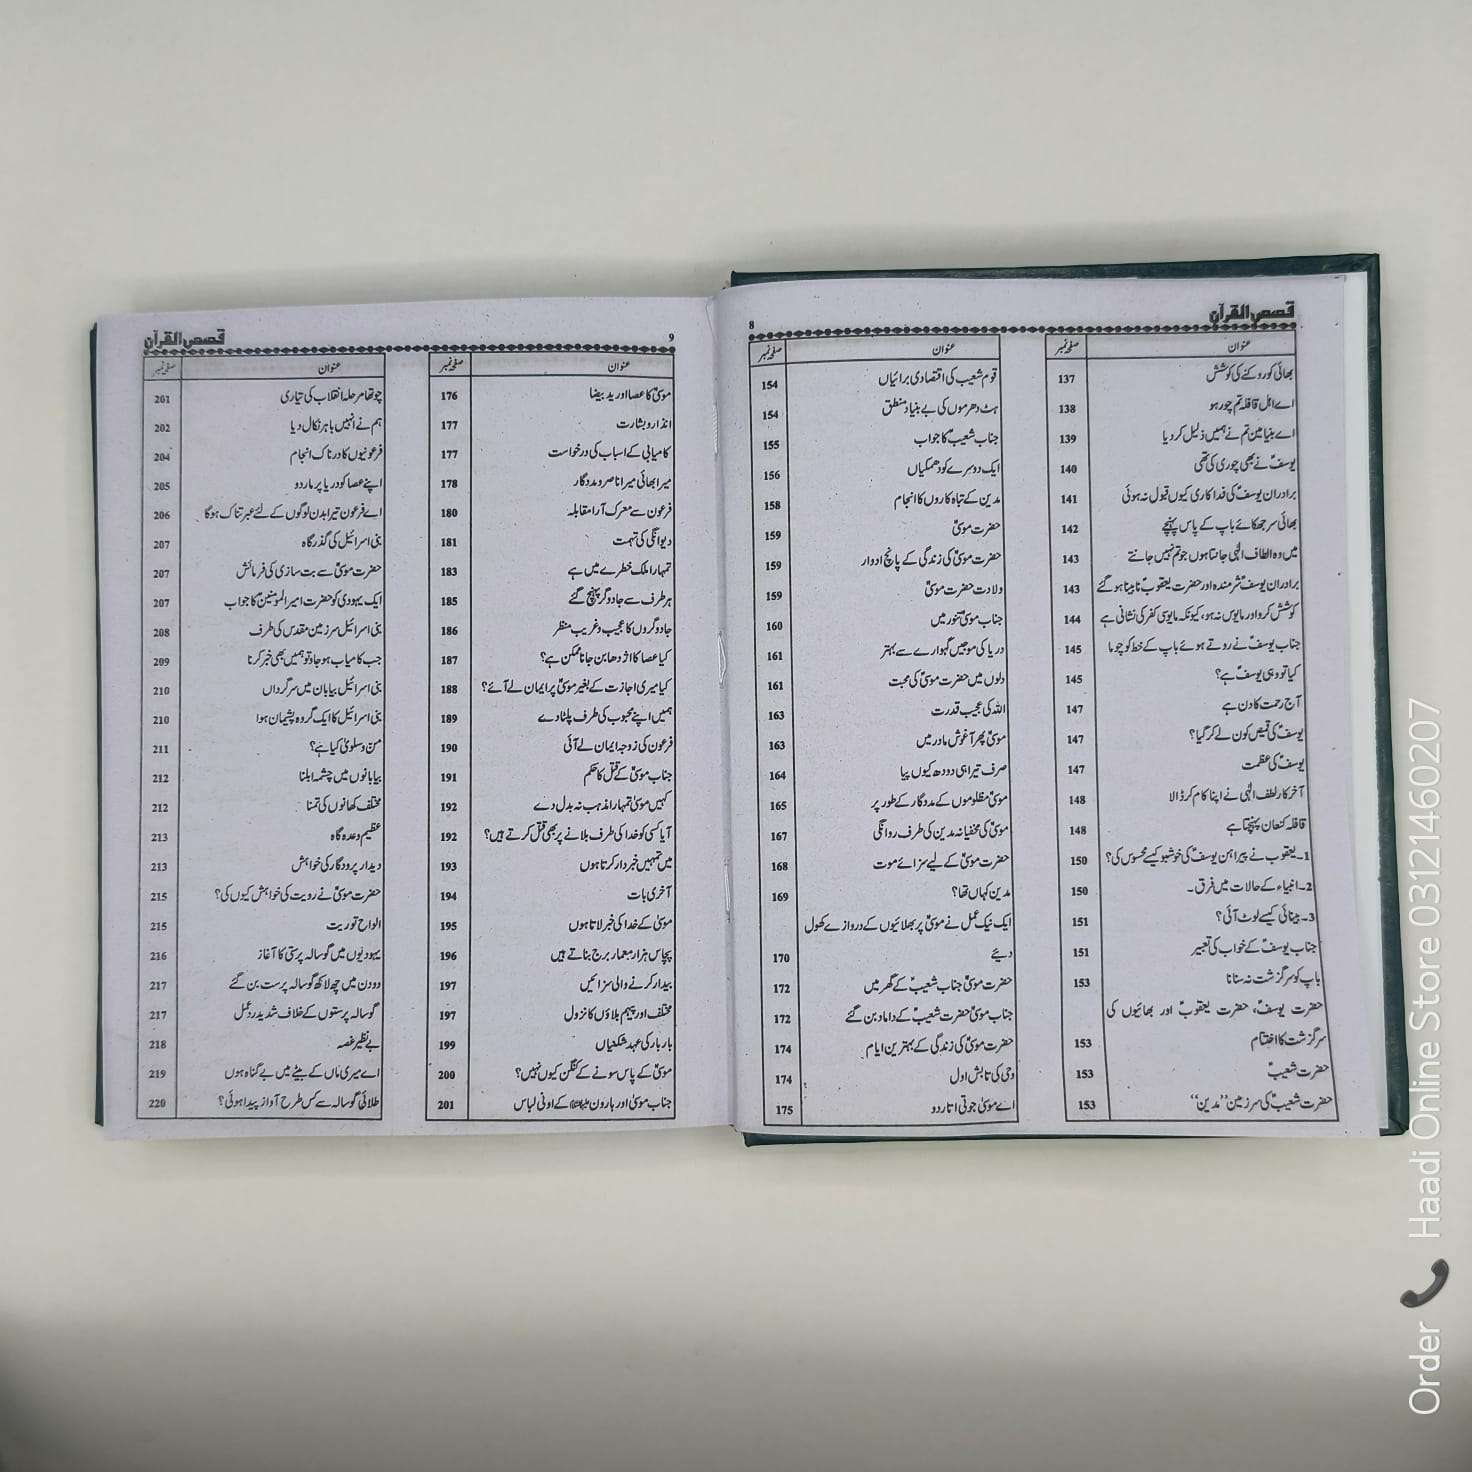 قصص القرآن
8
عنوان صفحہ نمبر
بھائی کو روکنے کی کوشش 137
اے اہل قافلہ تم چور ہو 138
اے بنیامین تم نے ہمیں ذلیل کر دیا 139
یوسفؑ نے بھی چوری کی تھی 140
برادران یوسفؑ کی فداکاری کیوں قبول نہ ہوئی 141
بھائی سر جھکائے باپ کے پاس پہنچے 142
میں وہ الطاف الٰہی جانتا ہوں جو تم نہیں جانتے 143
برادران یوسفؑ شرمندہ اور حضرت یعقوبؑ نابینا ہو گئے 143
کوشش کرو اور مایوس نہ ہو، کیونکہ مایوسی کفر کی نشانی ہے 144
جناب یوسفؑ نے روتے ہوئے باپ کے خط کو چوما 145
کیا تو وہی یوسفؑ ہے؟ 145
آج رحمت کا دن ہے 147
یوسفؑ کی قمیص کون لے کر گیا؟ 147
یوسفؑ کی عظمت 147
آخر کار لطف الٰہی نے اپنا کام کر ڈالا 148
قافلہ کنعان پہنچتا ہے 148
1۔ یعقوب نے پیراہن یوسفؑ کی خوشبو کیسے محسوس کی؟ 150
2۔ انبیاء کے حالات میں فرق۔ 150
3۔ بینائی کیسے لوٹ آئی؟ 151
جناب یوسفؑ کے خواب کی تعبیر 151
باپ کو سرگزشت نہ سنانا 153
حضرت یوسفؑ، حضرت یعقوبؑ اور بھائیوں کی
سرگزشت کا اختتام 153
حضرت شعیبؑ 153
حضرت شعیبؑ کی سرزمین ”مدین“ 153
عنوان صفحہ نمبر
قوم شعیب کی اقتصادی برائیاں 154
ہٹ دھرموں کی بے بنیاد منطق 154
جناب شعیبؑ کا جواب 155
ایک دوسرے کو دھمکیاں 156
مدین کے تباہ کاروں کا انجام 158
حضرت موسیٰؑ 159
حضرت موسیٰؑ کی زندگی کے پانچ ادوار 159
ولادت حضرت موسیٰؑ 159
جناب موسیٰؑ تنور میں 160
دریا کی موجیں گہوارے سے بہتر 161
دلوں میں حضرت موسیٰؑ کی محبت 161
اللہ کی عجیب قدرت 163
موسیٰؑ پھر آغوش مادر میں 163
صرف تیرا ہی دودھ کیوں پیا 164
موسیٰؑ مظلوموں کے مددگار کے طور پر 165
موسیٰؑ کی مخفیانہ مدین کی طرف روانگی 167
حضرت موسیٰؑ کے لیے سزائے موت 168
مدین کہاں تھا؟ 169
ایک نیک عمل نے موسیٰؑ پر بھلائیوں کے دروازے کھول
دیئے 170
حضرت موسیٰؑ جناب شعیبؑ کے گھر میں 172
جناب موسیٰؑ حضرت شعیبؑ کے داماد بن گئے 172
حضرت موسیٰؑ کی زندگی کے بہترین ایام 174
وحی کی تابش اول 174
اے موسیٰ جوتی اتار دو 175
9
قصص القرآن
عنوان صفحہ نمبر
موسیٰؑ کا عصا اور ید بیضا 176
انذار و بشارت 177
کامیابی کے اسباب کی درخواست 177
میرا بھائی میرا ناصر و مددگار 178
فرعون سے معرکہ آرا مقابلہ 180
دیوانگی کی تہمت 181
تمہارا ملک خطرے میں ہے 183
ہر طرف سے جادوگر پہنچ گئے 185
جادوگروں کا عجیب و غریب منظر 186
کیا عصا کا اژدھا بن جانا ممکن ہے؟ 187
کیا میری اجازت کے بغیر موسیٰؑ پر ایمان لے آئے؟ 188
ہمیں اپنے محبوب کی طرف پلٹا دے 189
فرعون کی زوجہ ایمان لے آئی 190
جناب موسیٰؑ کے قتل کا حکم 191
کہیں موسیٰ تمہارا مذہب نہ بدل دے 192
آیا کسی کو خدا کی طرف بلانے پر بھی قتل کرتے ہیں؟ 192
میں تمہیں خبردار کرتا ہوں 193
آخری بات 194
موسیٰؑ کے خدا کی خبر لاتا ہوں 195
پچاس ہزار معمار برج بناتے ہیں 196
بیدار کرنے والی سزائیں 197
مختلف اور پیہم بلاؤں کا نزول 197
بار بار کی عہد شکنیاں 199
موسیٰؑ کے پاس سونے کے کنگن کیوں نہیں؟ 200
جناب موسیٰؑ اور ہارون کے اونی لباس 201
عنوان صفحہ نمبر
چوتھا مرحلہ انقلاب کی تیاری 201
ہم نے انہیں باہر نکال دیا 202
فرعونیوں کا دردناک انجام 204
اپنے عصا کو دریا پر مار دو 205
اے فرعون تیرا بدن لوگوں کے لئے عبرتناک ہوگا 206
بنی اسرائیل کی گذرگاہ 207
حضرت موسیٰؑ سے بت سازی کی فرمائش 207
ایک یہودی کو حضرت امیر المومنینؑ کا جواب 207
بنی اسرائیل سرزمین مقدس کی طرف 208
جب کامیاب ہو جاؤ تو ہمیں بھی خبر کرنا 209
بنی اسرائیل بیابان میں سرگرداں 210
بنی اسرائیل کا ایک گروہ پشیمان ہوا 210
من و سلویٰ کیا ہے؟ 211
بیابانوں میں چشمہ ابلنا 212
مختلف کھانوں کی تمنا 212
عظیم وعدہ گاہ 213
دیدار پروردگار کی خواہش 213
حضرت موسیٰؑ نے رویت کی خواہش کیوں کی؟ 215
الواح توریت 215
یہودیوں میں گوسالہ پرستی کا آغاز 216
دو دن میں چھ لاکھ گوسالہ پرست بن گئے 217
گوسالہ پرستوں کے خلاف شدید ردعمل 217
بے نظیر غصہ 218
اے میری ماں کے بیٹے میں بے گناہ ہوں 219
طلائی گوسالہ سے کس طرح آواز پیدا ہوئی؟ 220
Order Haadi Online Store 03121460207